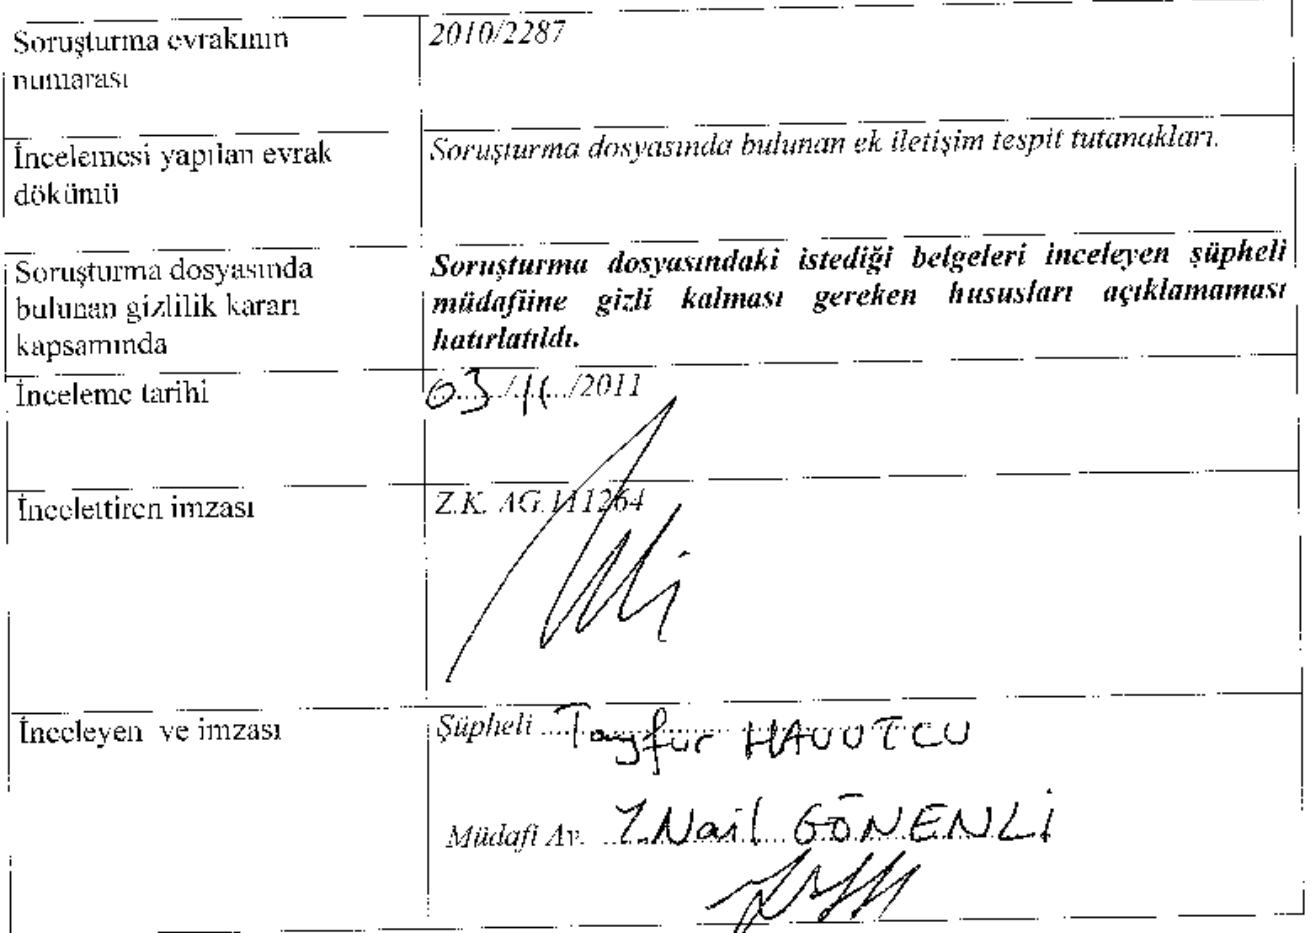 Soruşturma evrakının
numarası
2010/2287
İncelemesi yapılan evrak
dökümü
Soruşturma dosyasında bulunan ek iletişim tespit tutanakları.
Soruşturma dosyasında
bulunan gizlilik kararı
kapsamında
Soruşturma dosyasındaki istediği belgeleri inceleyen şüpheli
müdafiine gizli kalması gereken hususları açıklamaması
hatırlatıldı.
İnceleme tarihi
03/11/2011
İncelettiren imzası
Z.K. AG.111264
İnceleyen ve imzası
Şüpheli Tayfur HAVUTCU
Müdafi Av. Nail GÖNENLİ